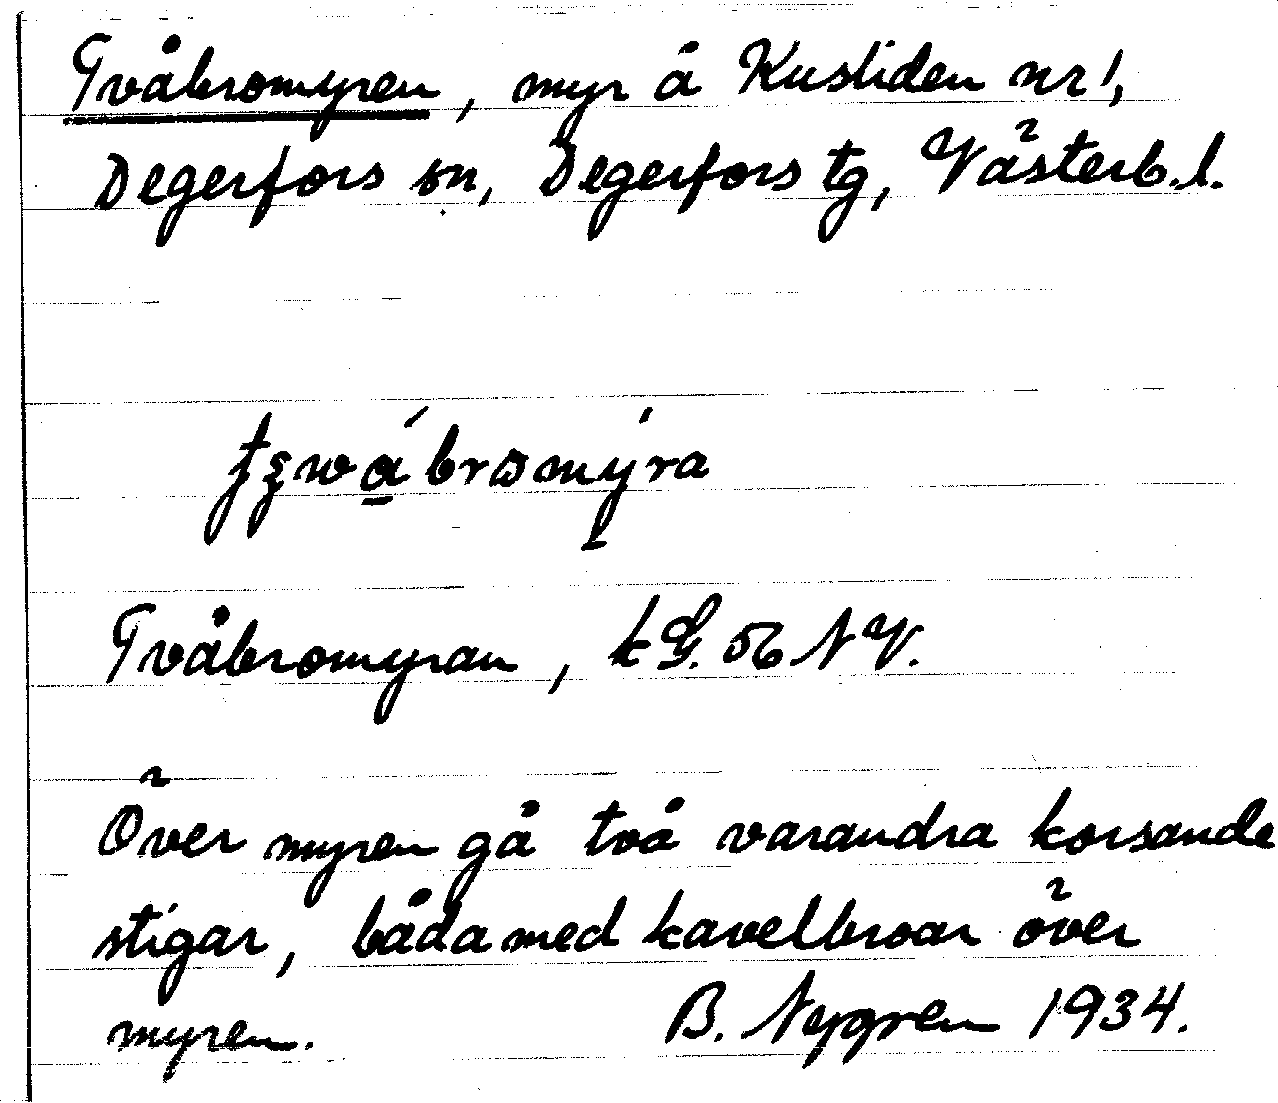 Tvåbromyren, myr å Kusliden nr 1,
Degerfors sn, Degerfors tg, Västerb.l.
Tvåbromyran, kG. 56 NV.
Över myren gå två varandra korsande
stigar, båda med kavelbroar över
myren. B. Nygren 1934.